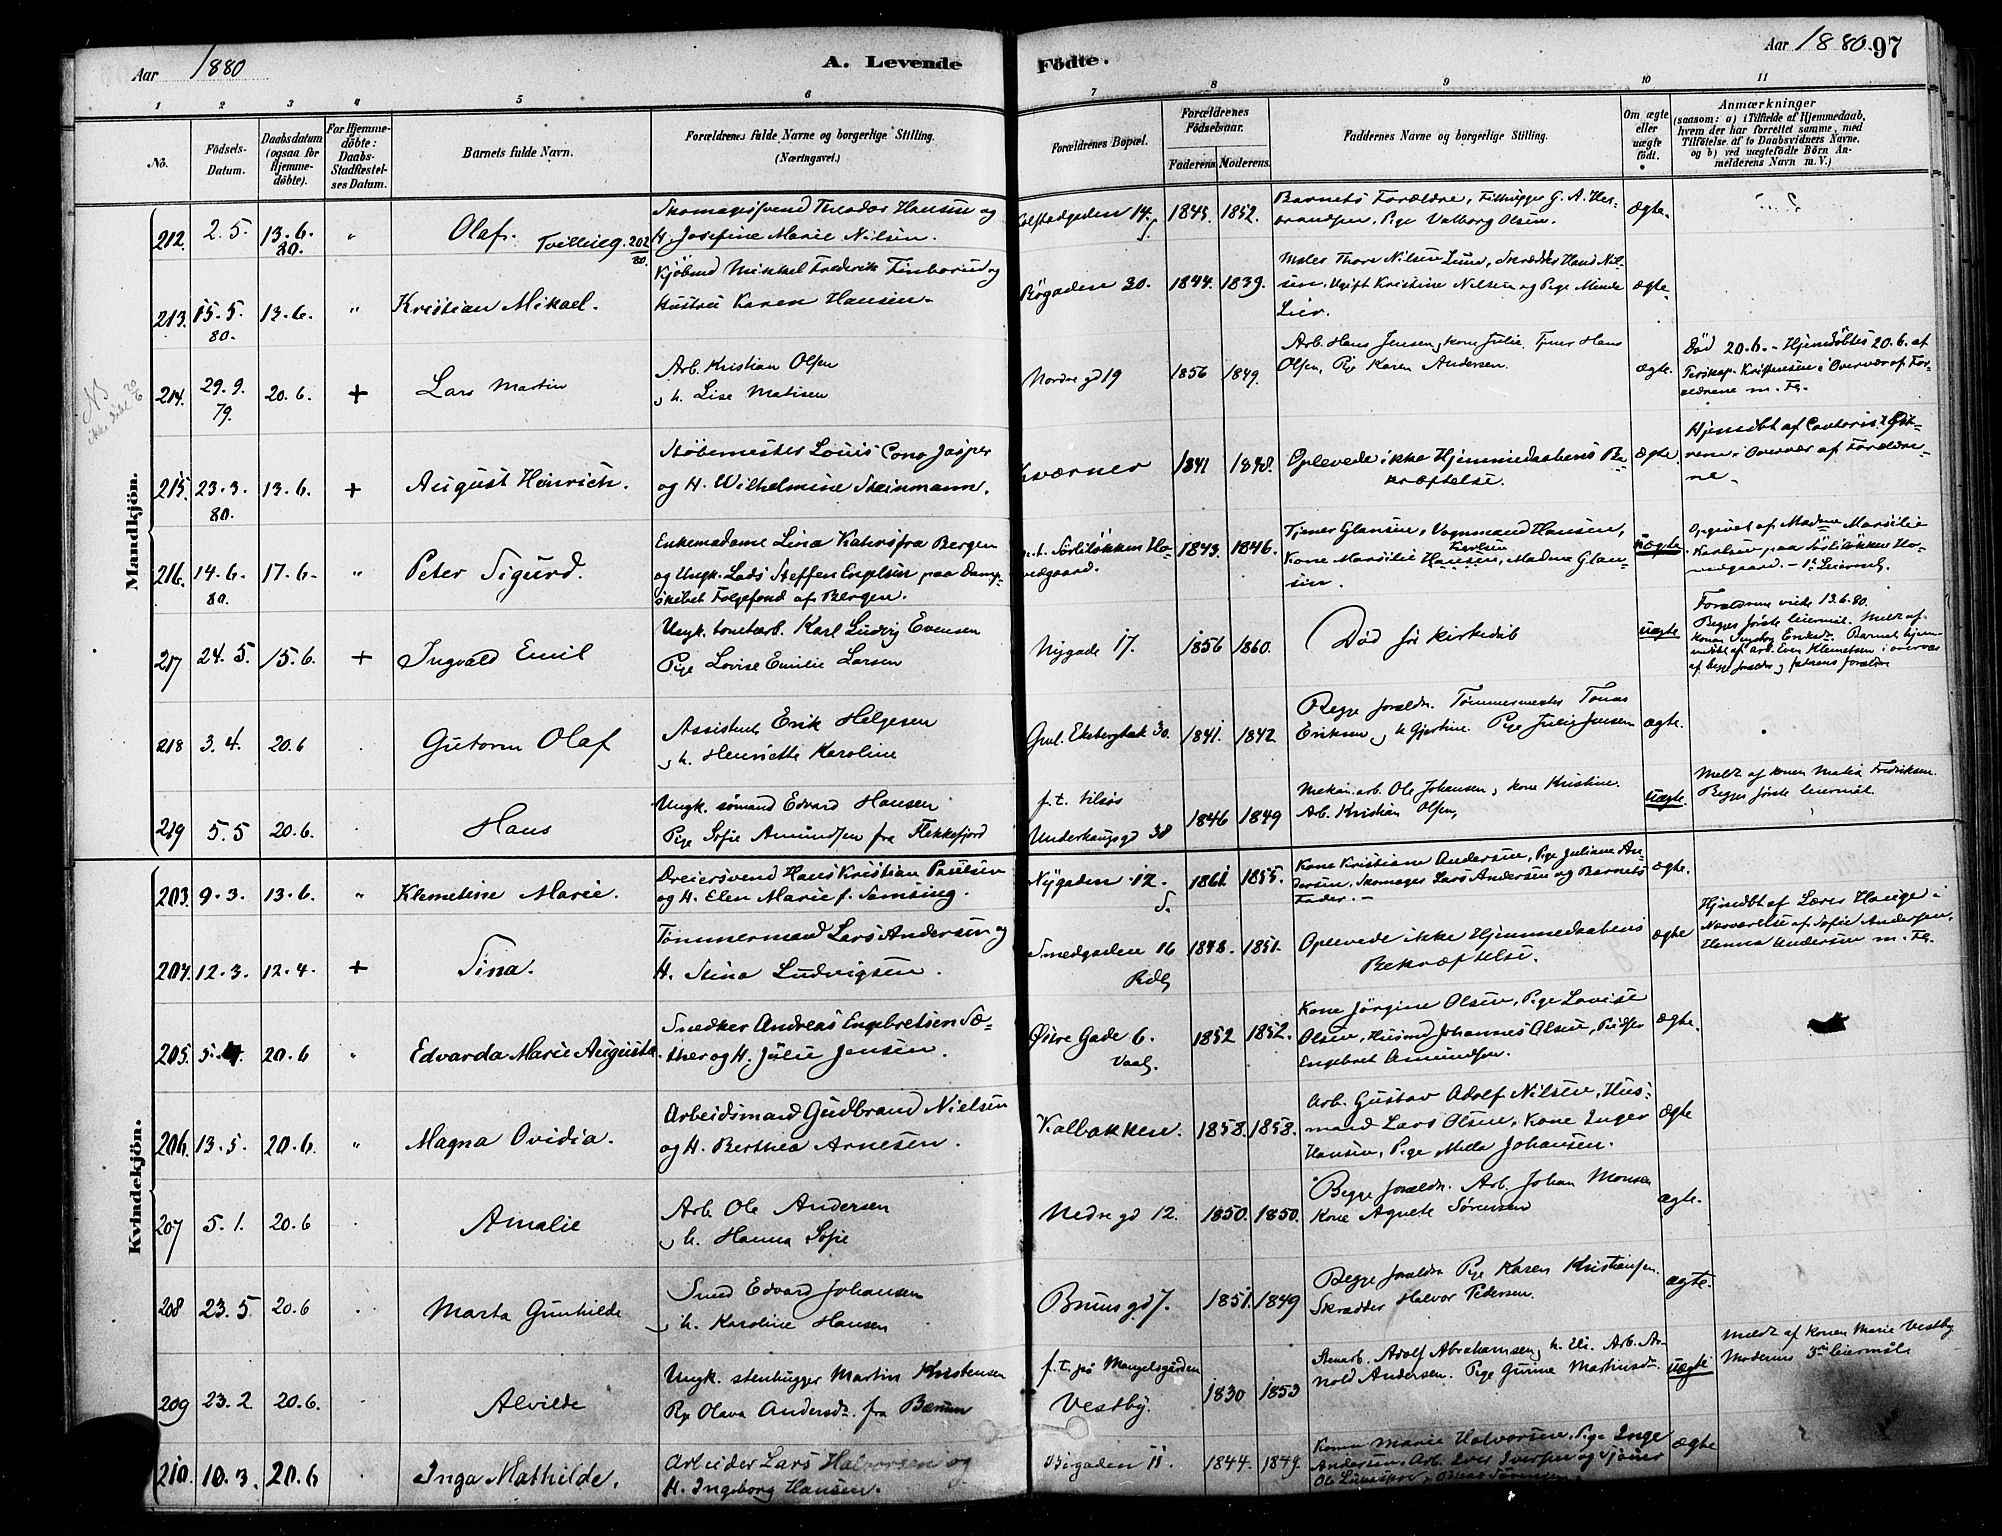 Aar 1880
A. Levende
Födte.
Aar 1880.
97
1 2 3 4 5 6 7 8 9 10 11
No.
Födsels-
Datum.
Daabsdatum
(ogsaa for
Hjemme-
döbte).
For Hjemme-
döbte:
Daabs-
Stadfæstel-
ses Datum.
Barnets fulde Navn.
Forældrenes fulde Navne og borgerlige Stilling.
(Næringsvei.)
Forældrenes Bopæl.
Forældrenes
Födselsaar.
Faderens.
Moderens.
Faddernes Navne og borgerlige Stilling.
Om ægte
eller
uægte
födt.
Anmærkninger
(saasom: a) i Tilfælde af Hjemmedaab,
hvem der har forrettet samme, med
Tilföielse af to Daabsvidners Navne,
og b) ved uægtefödte Börn An-
melderens Navn m. V.)
Mandkjön.
212. 2. 5. 13. 6. " Olaf. Tvilling. 202/80.
80.
Skomagersvend Theodor Hansen og
H. Josefine Marie Nilsen.
14. 1845 1852.
Barnets Forældre, G. A. Her-
brandsen, Pige Valborg Olsen.
Ægte.
213. 15. 5. 13. 6. " Kristian Mikael.
80.
Kjöbmd Mikkel Frederik Finborud og
Hustru Karen Hansen.
Bögaden 30. 1844. 1839.
Maler Thore Nilsen Lund, Skrædder Hans Nil-
sen, Ugift Kristine Nilsen og Pige Minde
Lier.
Ægte.
NB
ikke döbt 20/6
214. 29. 9. 20. 6. + Lars Martin
79.
Arb. Kristian Olsen
og h. Lise Matisen
Nordre gd 19 1856 1849.
Arb. Hans Jensen og kone Julie. Tjener Hans
Olsen, Pige Karen Andersen.
ægte.
Död 20. 6. - Hjemdöbtes 20. 6. af
Kristensen i Overvær af For-
ældrene m. Fl.
215. 23. 3. 13. 6. + August Heinrich.
80.
Stöbemester Louis Cono Jasper
og H. Wilhelmine Steinmann.
Kværner 1841 1848.
Oplevede ikke Hjemmedaabens Be-
kræftelse.
Ægte.
Hjemdbt af Contorist
i Overvær af Forældre-
ne.
216. 14. 6. 17. 6. " Peter Sigurd.
80.
Enkemadame Lina fra Bergen
og Ungk. Lods Steffen Engelsen paa Damp-
skibet Folgefond af Bergen.
p. t. Sörlilökken Ho-
vedgaard. 1843. 1846.
Tjener Glansen, Vognmand Hansen,
Kone Marsilie Hansen Karlsen, Madme Glan-
sen.
uægte
Opgivet af Madme Marsilie
Karlsen paa Sörlilökken Ho-
vedgaard. - 1ste Leiermål.
217 24. 5. 15. 6. + Ingvald Emil
Ungk. tomtearb. Karl Ludvig Evensen
Pige Lovise Emilie Larsen
Nygade 17. 1856 1860.
Död för kirkedåb
uægte
Forældrene viede 13. 6. 80.
Begges förste leiermål. Meldt af
konen Ingeborg Eriksdr. Barnet hjem-
medöbt af arb. Even Klemetsen i overvær
af begge foreldre og faderens foreldre
218 3. 4. 20. 6 Gutorm Olaf
Assistent Erik Helgesen
og h. Henriette Karoline
Gml. Ekebergbak 30. 1841. 1842
Begge foreldr. Tömmermester Tomas
Eriksen og h Gjertine. Pige Julie Jensen
ægte.
219 5. 5 20. 6. Hans
Ungk. sömand Edvard Hansen
Pige Sofie Amundsen fra Flekkefjord
f. t. tilsös
Underhaugsgd 38 1846 1849
Mekan. arb. Ole Johansen og kone Kristine.
Arb. Kristian Olsen,
uægte.
Meldt af konen Matea Fredriksen.
Begges förste leiermål.
Kvindekjön.
203. 9. 3. 13. 6. " Klemetine Marie.
Dreiersvend Hans Kristian Paulsen
og H. Elen Marie f. Semsing.
Nygaden 12. S. 1861. 1855.
Kone Kristiane Andersen, Pige Juliane An-
dersen, Skomager Lars Andersen og Barnets
Fader. -
ægte.
204. 12. 3. 12. 4. + Sina.
Tömmermand Lars Andersen og
H. Stina Ludvigsen.
Smedgaden 16 1848. 1851.
Oplevede ikke Hjemmedaabens
Bekræftelse.
ægte
Hjmdbt af Lærer Hauge i
Nærværelse af Sofie Andersen,
Hanna Andersen m. Fl.
205. 5. 4. 20. 6 " Edvarda Marie Augusta.
Snedker Andreas Engebretsen Sæ-
ther og H. Julie Jensen.
Östre Gade 6.
Vaal. 1852 1852.
Kone Jörgine Olsen, Pige Lovise
Olsen, Husmd Johannes Olsen,
Engebret Amundsen.
ægte.
206. 13. 5. 20. 6. " Magna Ovidia.
Arbeidsmand Gudbrand Nielsen
og H. Berthea Arnesen.
Kalbakken. 1858. 1858.
Arb. Gustav Adolf Nilsen, Hus-
mand Lars Olsen, Kone Inger
Hansen, Pige Milla Johansen.
ægte
207 5. 1. 20. 6 Amalie
Arb. Ole Andersen
og h. Hanna Sofie
Nedre gd 12. 1850. 1850.
Begge foreldr. Arb. Johan Monsen
Kone Agnete Sörensen
ægte.
208 23. 5 20. 6 Marta Gunhilde
Smed Edvard Johansen
og h. Karoline Hansen
Bruns gd 7. 1851. 1849
Begge foreldre Pige Karen Kristiansen.
Skrædder Halvor Pedersen.
ægte.
209 23. 2 20. 6. Alvilde
Ungk. stenhugger Martin Kristensen
Pige Olava Andersdr. fra Bærum
f. t. på Mangelsgården
Vestby. 1830 1853
Stenarb. Adolf Abrahamsen og h. Eli. Arb. Ar-
nold Andersen. Pige Gurine Martinsdr.
uægte
Meldt af konen Marie Vestby.
Moderens 3die leiermål
210. 10. 3. 20. 6 Inga Mathilde.
Arbeider Lars Halvorsen og
H. Ingeborg Hansen.
Bögaden 11. 1844. 1849.
Konen Marie Halvorsen, Pige Inge
Andersen, Arb. Iver Iversen og
ægte